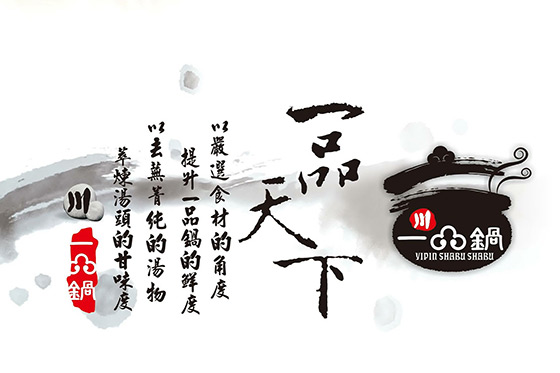 川
一品鍋
YIPIN SHABU SHABU
一品
天下
以嚴選食材的角度
提升一品鍋的鮮度
以去蕪菁純的湯物
萃煉湯頭的甘味度
川
一品鍋